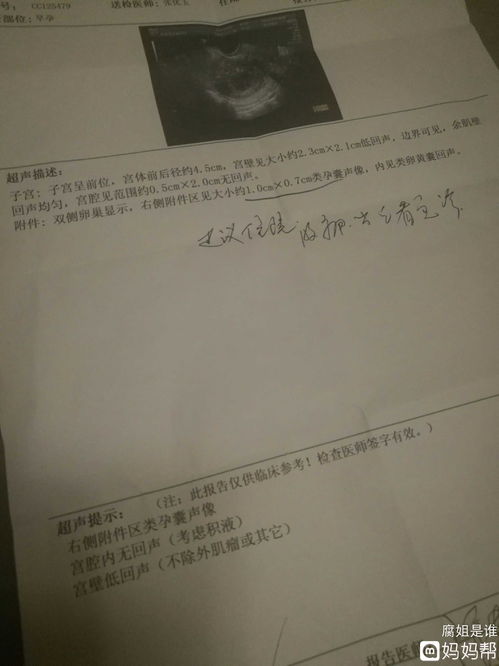 号： CC125479 送检医师：
部位：早孕
超声描述：
子宫：子宫呈前位，宫体前后径约4.5cm，宫壁见大小约2.3cm×2.1cm低回声，边界可见，余肌壁
回声均匀，宫腔见范围约0.5cm×2.0cm无回声。
附件：双侧卵巢显示，右侧附件区见大小约1.0cm×0.7cm类孕囊声像，内见类卵黄囊回声。
建议住院
超声提示： （注：此报告仅供临床参考！检查医师签字有效。）
右侧附件区类孕囊声像
宫腔内无回声（考虑积液）
宫壁低回声（不除外肌瘤或其它）
报告医师
腐姐是谁
妈妈帮